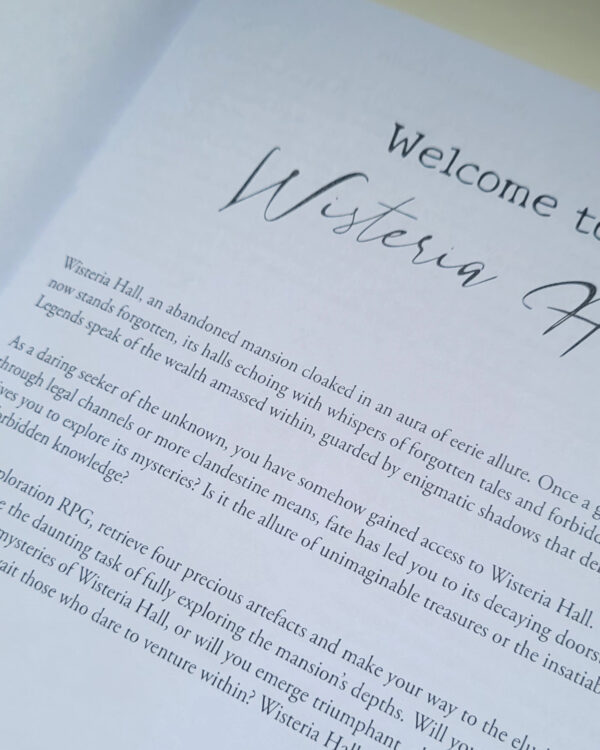 Welcome to
Wisteria H
Wisteria Hall, an abandoned mansion cloaked in an aura of eerie allure. Once a g
now stands forgotten, its halls echoing with whispers of forgotten tales and forbidd
Legends speak of the wealth amassed within, guarded by enigmatic shadows that de
As a daring seeker of the unknown, you have somehow gained access to Wisteria Hall.
through legal channels or more clandestine means, fate has led you to its decaying doors
ives you to explore its mysteries? Is it the allure of unimaginable treasures or the insatiab
orbidden knowledge?
ploration RPG, retrieve four precious artefacts and make your way to the el
e the daunting task of fully exploring the mansion's depths. Will yo
mysteries of Wisteria Hall, or will you emerge triumphant
ait those who dare to venture within? Wisteria Hall